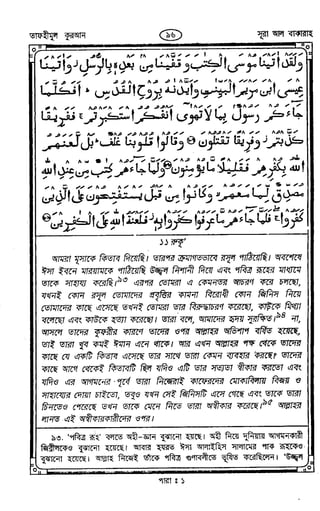 তাফহীমুল কুরআন ৯৬ সূরা আল বাকারাহ
وَلَقَدْ اٰتَيْنَا مُوْسَى الْكِتٰبَ وَقَفَّيْنَا مِنْۢ بَعْدِهٖ بِالرُّسُلِ وَاٰتَيْنَا
عِيْسَى ابْنَ مَرْيَمَ الْبَيِّنٰتِ وَاَيَّدْنٰهُ بِرُوْحِ الْقُدُسِ ؕ اَفَكُلَّمَا
جَآءَكُمْ رَسُوْلٌۢ بِمَا لَا تَهْوٰٓى اَنْفُسُكُمُ اسْتَكْبَرْتُمْ ۚ فَفَرِيْقًا
كَذَّبْتُمْ وَفَرِيْقًا تَقْتُلُوْنَ ۝ وَقَالُوْا قُلُوْبُنَا غُلْفٌ ؕ بَلْ لَّعَنَهُمُ
اللّٰهُ بِكُفْرِهِمْ فَقَلِيْلًا مَّا يُؤْمِنُوْنَ ۝ وَلَمَّا جَآءَهُمْ كِتٰبٌ مِّنْ عِنْدِ اللّٰهِ
مُصَدِّقٌ لِّمَا مَعَهُمْ ۙ وَكَانُوْا مِنْ قَبْلُ يَسْتَفْتِحُوْنَ عَلَى الَّذِيْنَ
كَفَرُوْا ۚ فَلَمَّا جَآءَهُمْ مَّا عَرَفُوْا كَفَرُوْا بِهٖ ؗ فَلَعْنَةُ اللّٰهِ عَلَى الْكٰفِرِيْنَ ۝
১১ রুকূ'
আমরা মূসাকে কিতাব দিয়েছি। তারপর ক্রমাগতভাবে রসূল পাঠিয়েছি। অবশেষে
ঈসা ইবনে মারয়ামকে পাঠিয়েছি উজ্জ্বল নিশানী দিয়ে এবং পবিত্র রূহের মাধ্যমে
তাকে সাহায্য করেছি।৯৩ এরপর তোমরা এ কেমনতর আচরণ করে চলছো,
যখনই কোন রসূল তোমাদের প্রবৃত্তির কামনা বিরোধী কোন জিনিস নিয়ে
তোমাদের কাছে এসেছে তখনই তোমরা তার বিরুদ্ধাচরণ করেছো, কাউকে মিথ্যা
বলেছো এবং কাউকে হত্যা করেছো। তারা বলে, আমাদের হৃদয় সুরক্ষিত।৯৪ না,
আসলে তাদের কুফরীর কারণে তাদের ওপর আল্লাহর অভিশাপ বর্ষিত হয়েছে,
তাই তারা খুব কমই ঈমান এনে থাকে। আর এখন আল্লাহর পক্ষ থেকে তাদের
কাছে যে একটি কিতাব এসেছে তার সাথে তারা কেমন ব্যবহার করছে? তাদের
কাছে আগে থেকেই কিতাবটি ছিল যদিও এটি তার সত্যতা স্বীকার করতো এবং
যদিও এর আগমনের পূর্বে তারা নিজেরাই কাফেরদের মোকাবিলায় বিজয় ও
সাহায্যের দোয়া চাইতো, তবুও যখন সেই জিনিসটি এসে গেছে এবং তাকে তারা
চিনতেও পেরেছে তখন তাকে মেনে নিতে তারা অস্বীকার করেছে।৯৫ আল্লাহর
লানত এই অস্বীকারকারীদের ওপর।
৯৩. 'পবিত্র রূহ' বলতে অহী-জ্ঞান বুঝানো হয়েছে। অহী নিয়ে দুনিয়ায় আগমনকারী
জিব্রীলকেও বুঝানো হয়েছে। আবার হযরত ঈসা আলাইহিস সালামের পাক রূহকেও
বুঝানো হয়েছে। আল্লাহ নিজেই তাঁকে পবিত্র গুণাবলীতে ভূষিত করেছিলেন। 'উজ্জ্বল
পারা : ১